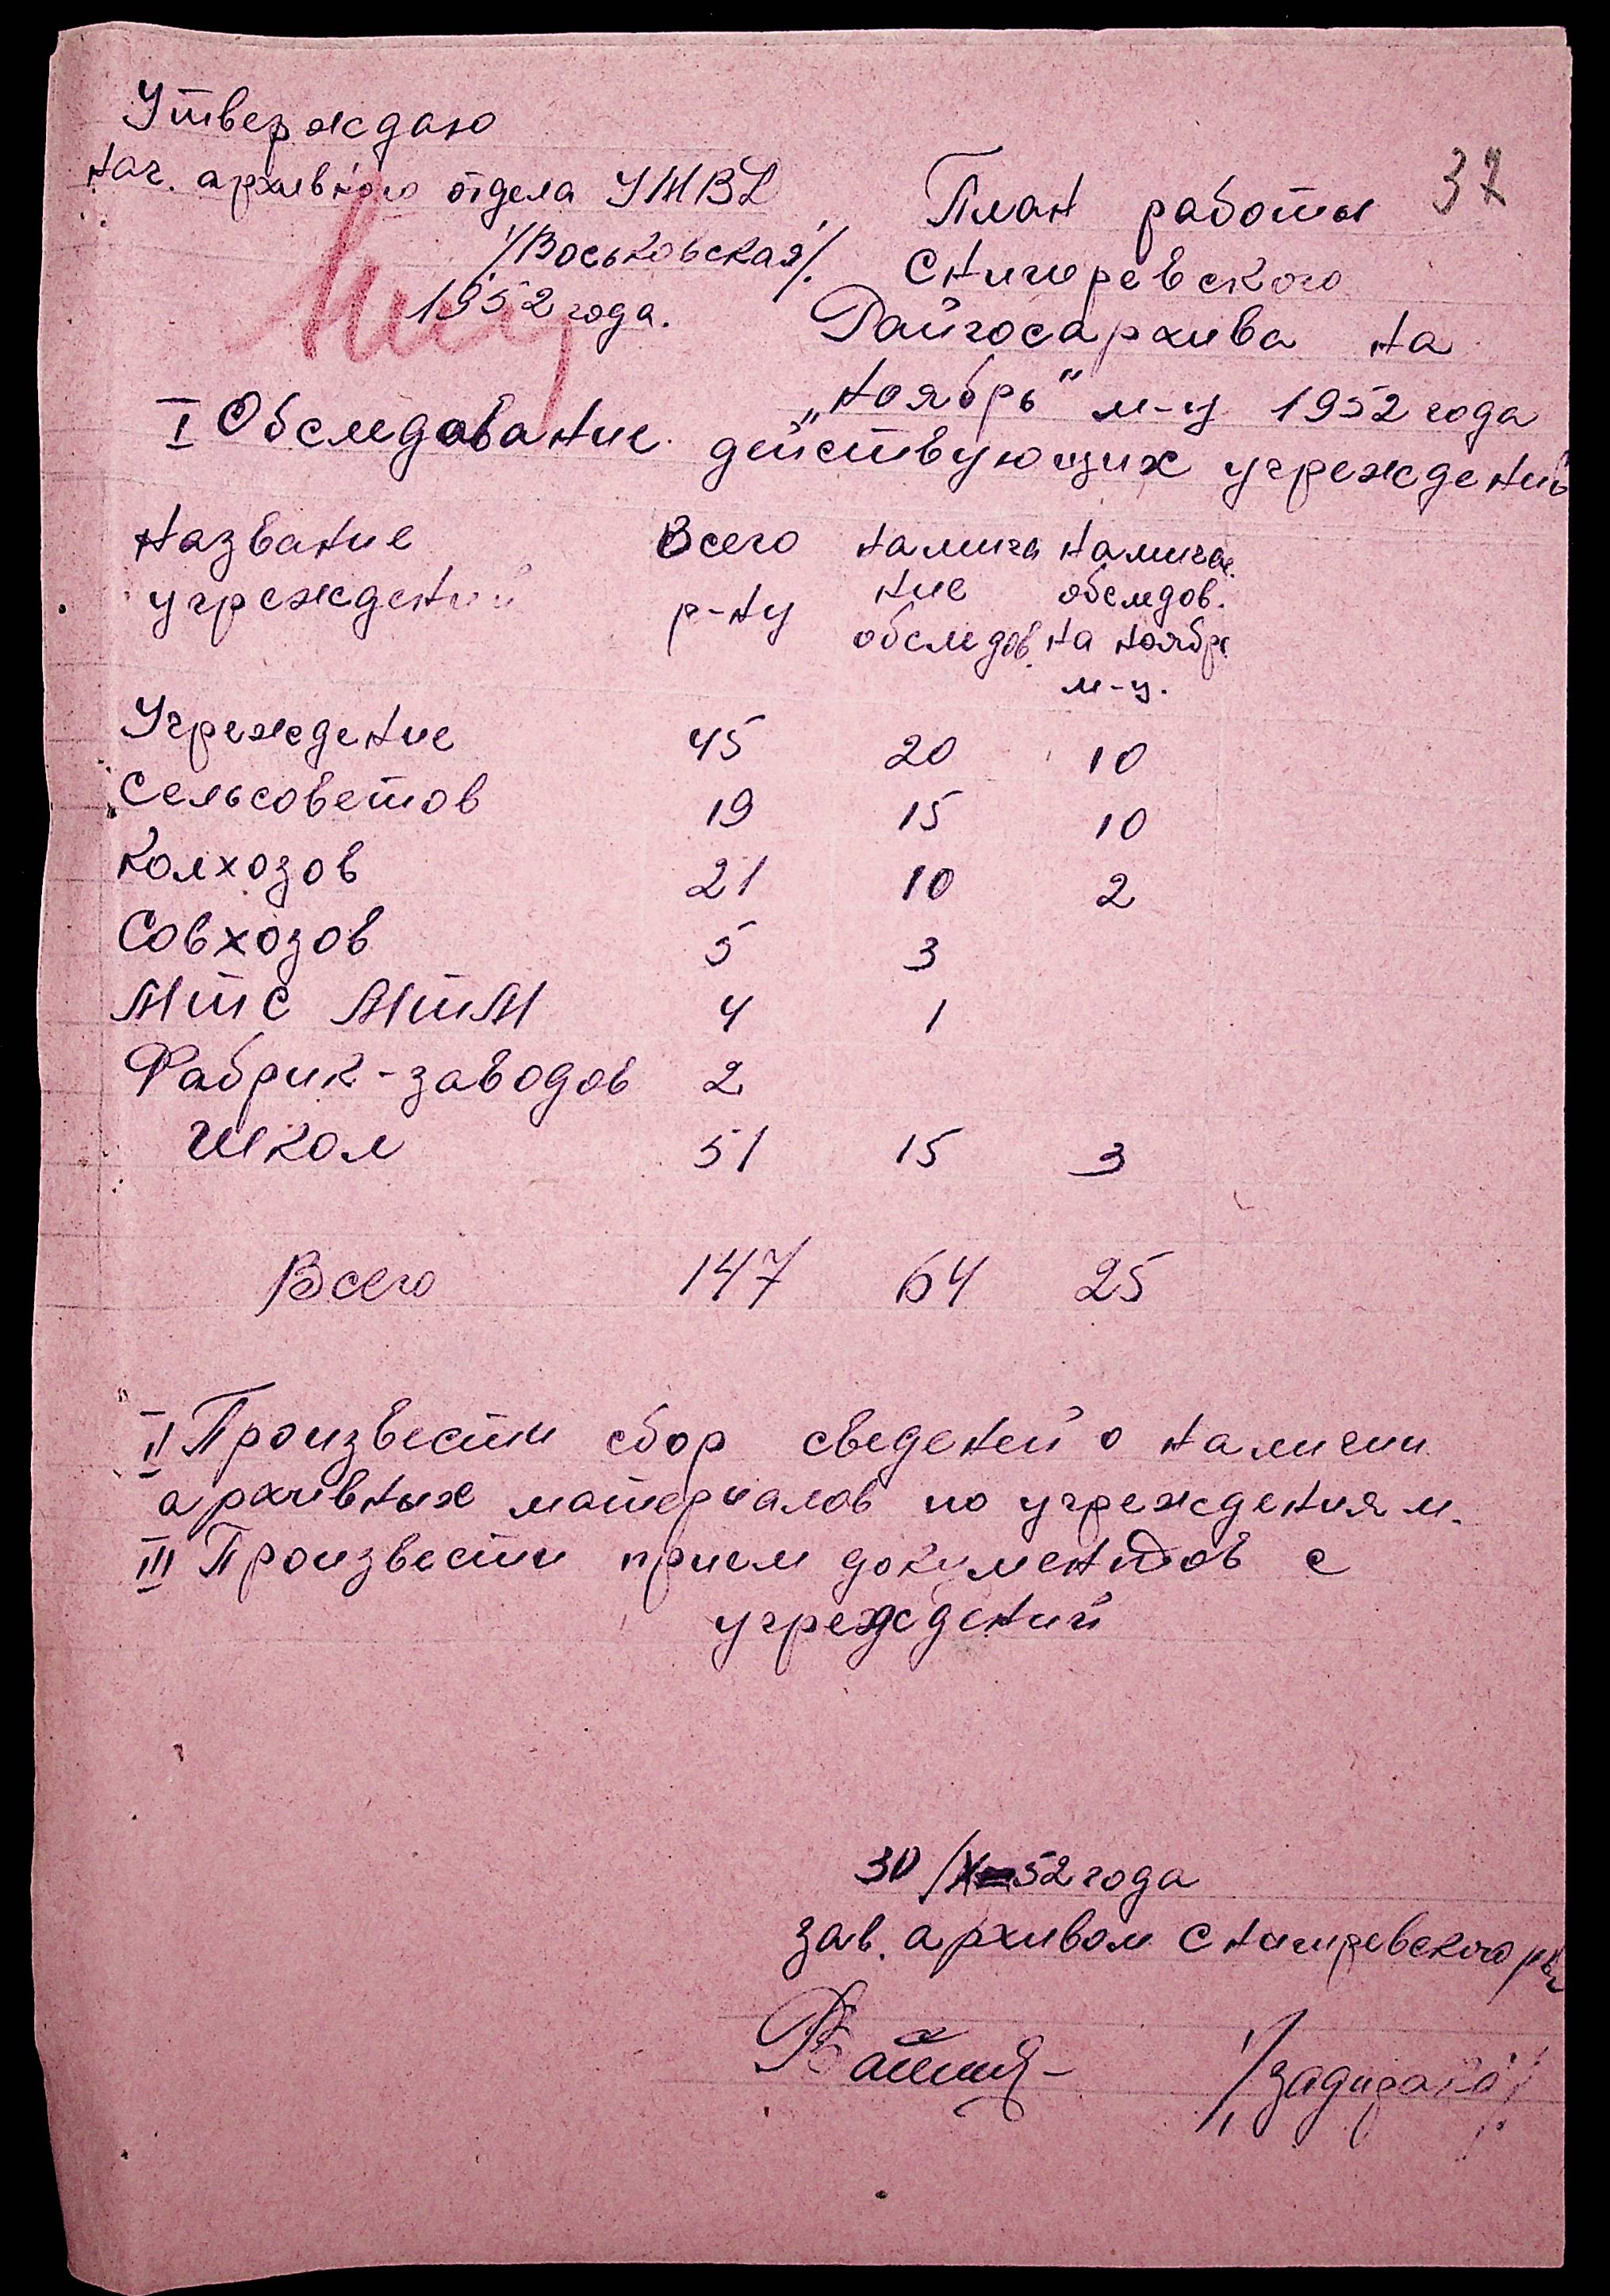 Утверждаю
Нач. архивного отдела УМВД
/Воськовская/.
1952 года.
37
План работы
Снигиревского
Райгосархива на
„Ноябрь" м-ц 1952 года
I Обследование действующих учреждений
Название учреждений Всего р-ну Намича ние обследов. Намичае. обследов. на ноябрь м-ц.
Учреждение 45 20 10
Сельсоветов 19 15 10
Колхозов 21 10 2
Совхозов 5 3
МТС МТМ 4 1
Фабрик-заводов 2
Школ 51 15 3
Всего 147 64 25
II Произвести сбор сведений о наличии
архивных материалов по учреждениям.
III Произвести прием документов с
учреждений
30/X-52 года
Зав. архивом Снигиревского